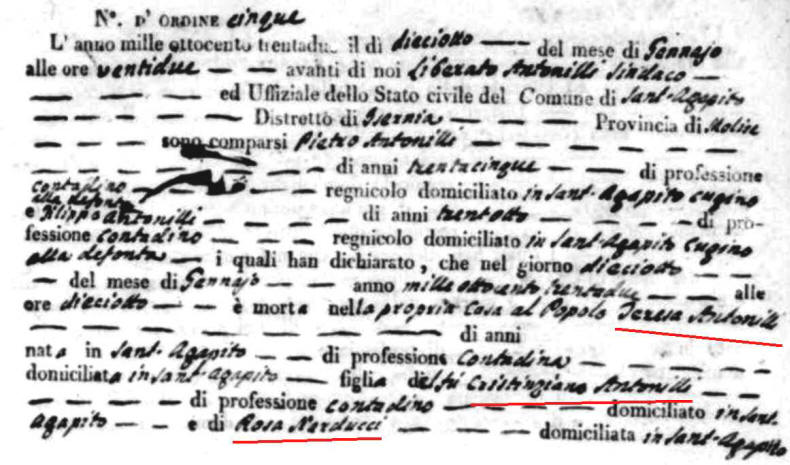 Nº. D' ORDINE cinque
L' anno mille ottocento trentadue il di dieciotto del mese di Gennajo
alle ore ventidue avanti di noi Liberato Antonilli Sindaco
ed Uffiziale dello Stato civile del Comune di Sant-Agapito
Distretto di Isernia Provincia di Molise
sono comparsi Pietro Antonilli
di anni trentacinque di professione
contadino regnicolo domiciliato in Sant-Agapito cugino
alla defonta
e Filippo Antonilli di anni trentotto di pro-
fessione contadino regnicolo domiciliato in Sant-Agapito Cugino
alla defonta i quali han dichiarato, che nel giorno dieciotto
del mese di Gennajo anno mille ottocento trentadue alle
ore dieciotto è morta nella propria Casa al Popolo Teresa Antonilli
di anni
nata in Sant-Agapito di professione Contadina
domiciliata in Sant-Agapito figlia del fu Cristinziano Antonilli
di professione contadino domiciliato in Sant-
Agapito e di Rosa Narducci domiciliata in Sant-Agapito